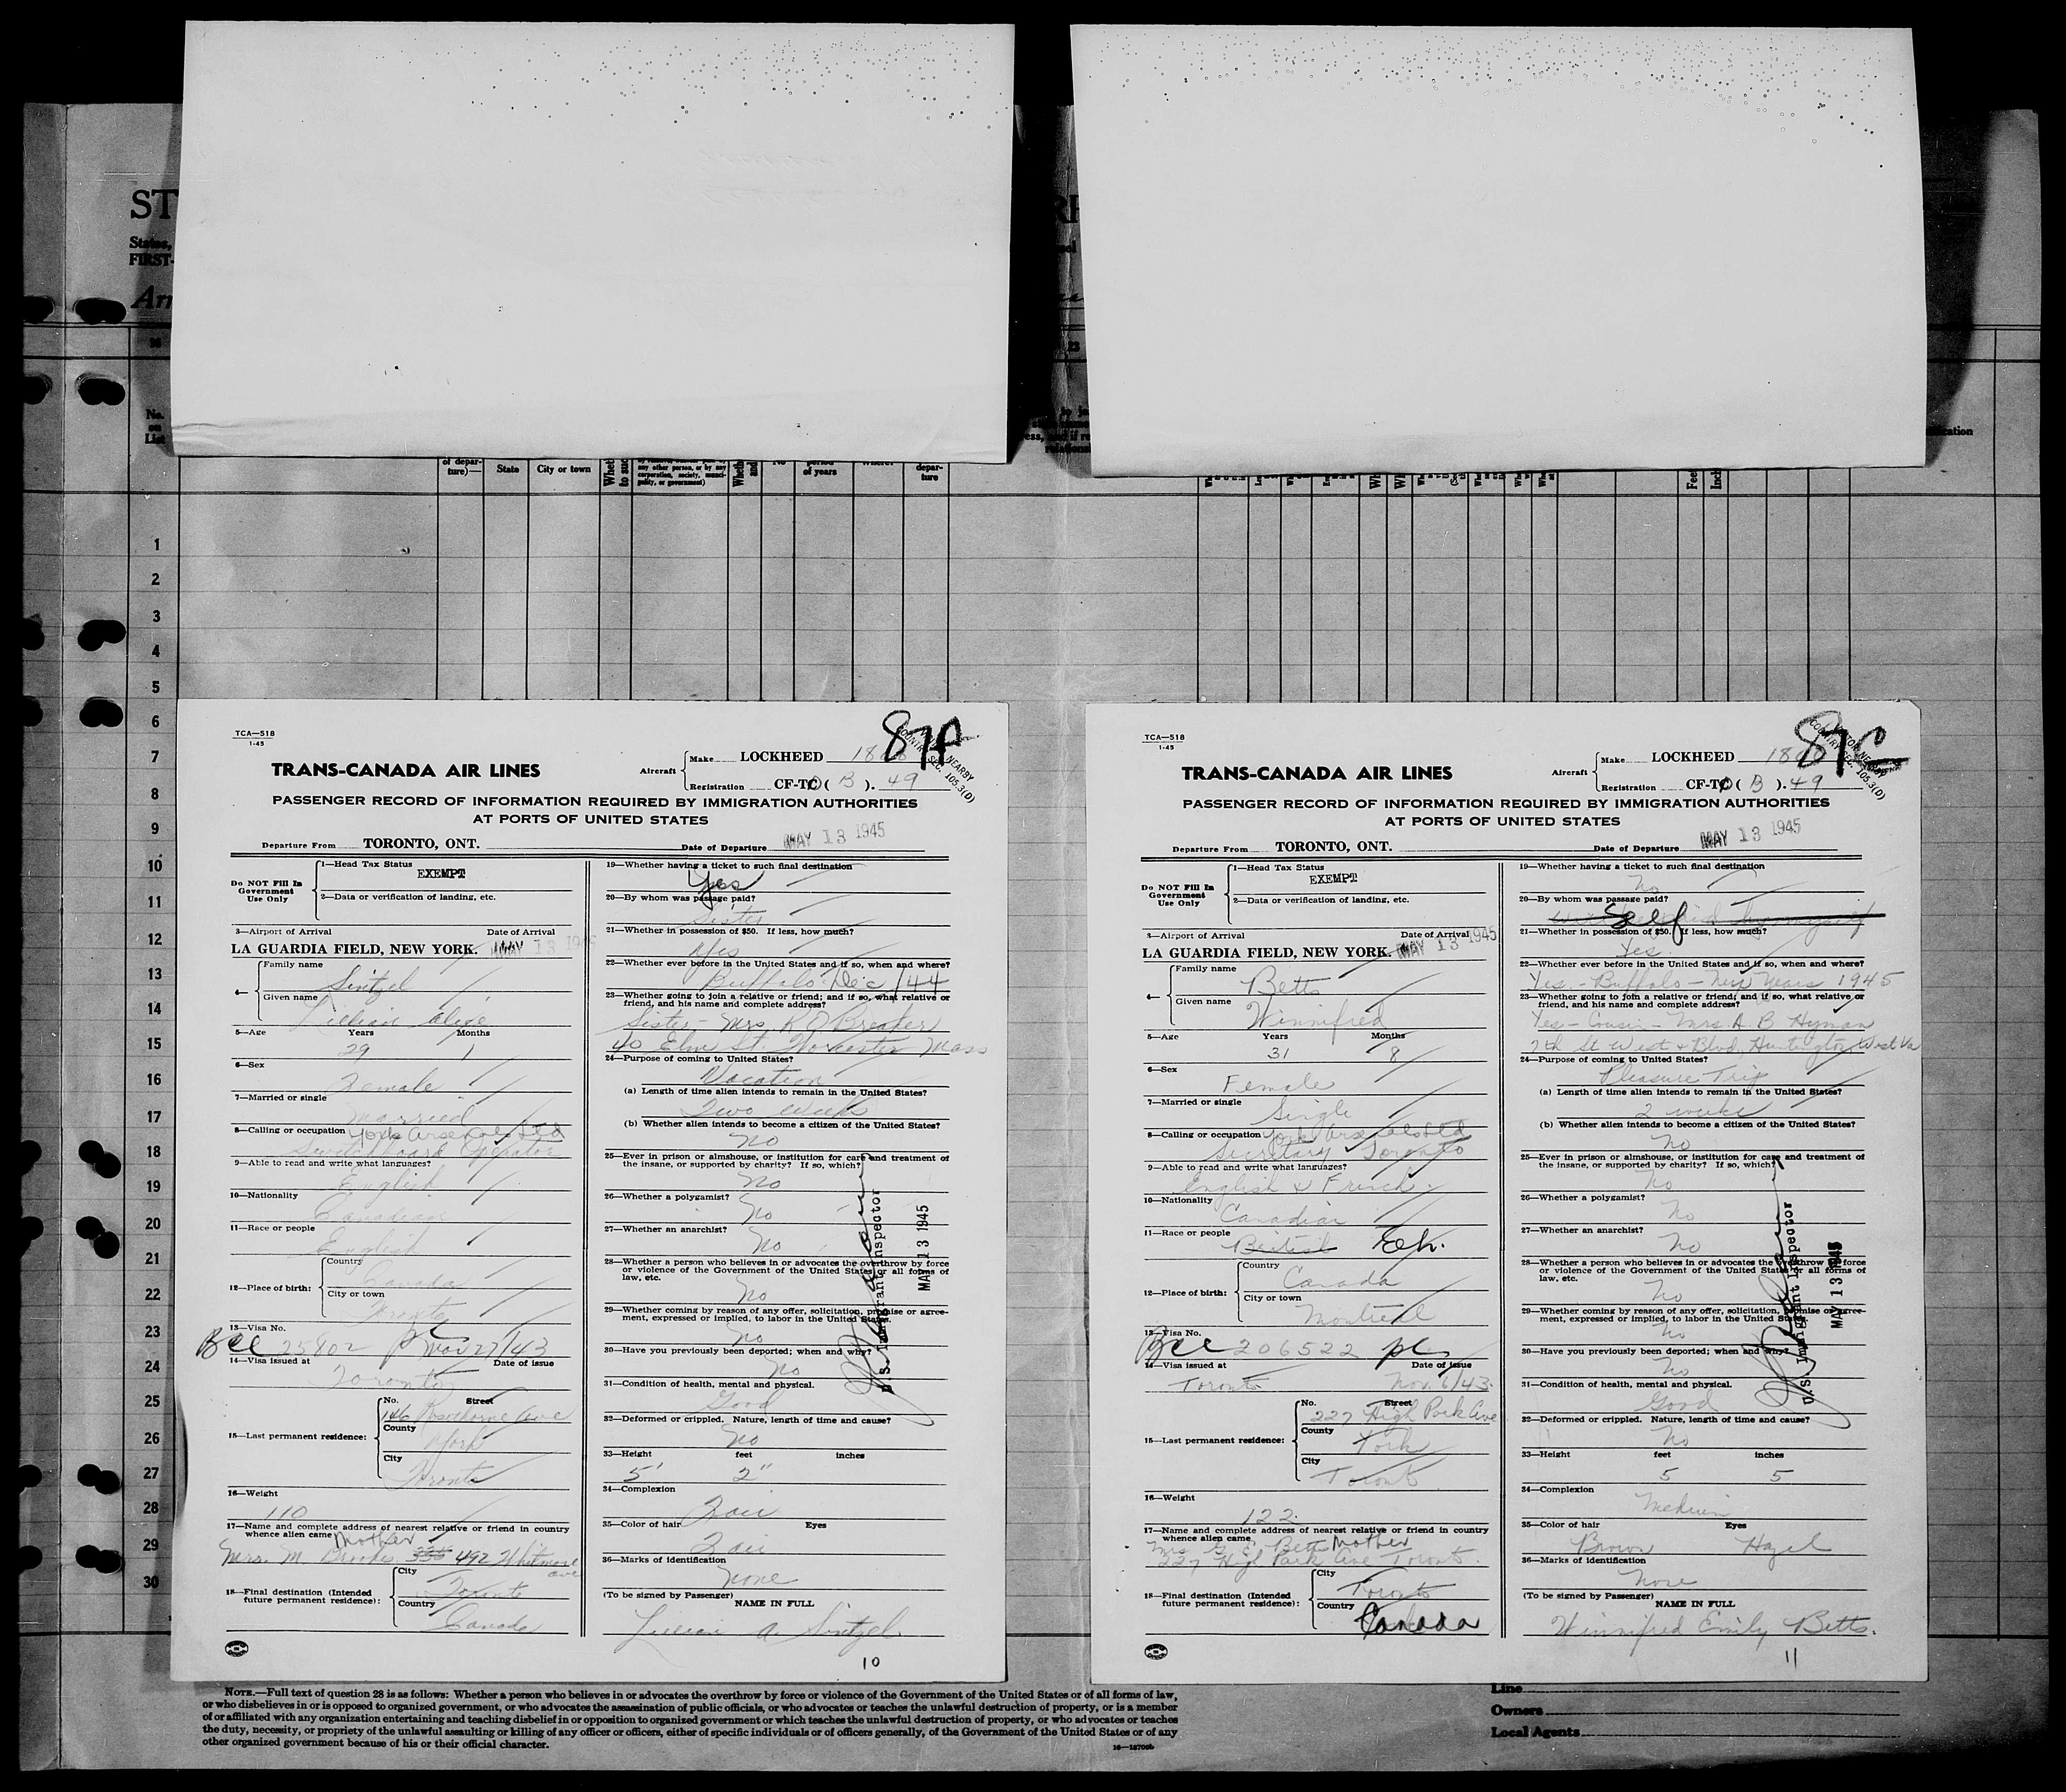 ST
States,
FIRST-
No.
on
List
of depar-
ture)—
State
City or town
any other person, or by any
corporation, society, munici-
pality, or government)
of years
depar-
ture
1
2
3
4
5
6
7
8
9
10
11
12
13
14
15
16
17
18
19
20
21
22
23
24
25
26
27
28
29
30
TCA—518
1-45
TRANS-CANADA AIR LINES
Aircraft
Make LOCKHEED
Registration CF-TC ( B ). 49
PASSENGER RECORD OF INFORMATION REQUIRED BY IMMIGRATION AUTHORITIES
AT PORTS OF UNITED STATES
Departure From TORONTO, ONT. Date of Departure MAY 13 1945
Do NOT Fill In
Government
Use Only
1—Head Tax Status
EXEMPT
2—Data or verification of landing, etc.
3—Airport of Arrival Date of Arrival
LA GUARDIA FIELD, NEW YORK. MAY 13 1945
4— Family name Sintzel
Given name Lillian Alice
5—Age Years Months
29 1
6—Sex
Female
7—Married or single
Married
8—Calling or occupation York Arsenals Ltd
Switchboard Operator
9—Able to read and write what languages?
English
10—Nationality
Canadian
11—Race or people
English
12—Place of birth: Country
Canada
City or town
Toronto
13—Visa No.
BCC 25802 Nov 27/43
14—Visa issued at Date of issue
Toronto
15—Last permanent residence: No. Street
146 Rosethorne Ave
County
York
City
Toronto
16—Weight
110
17—Name and complete address of nearest relative or friend in country
whence alien came Mother
Mrs. M. Brooks 335 492 Whitmore
ave
18—Final destination (Intended
future permanent residence):
City
Toronto
Country
Canada
19—Whether having a ticket to such final destination
Yes
20—By whom was passage paid?
Sister
21—Whether in possession of $50. If less, how much?
Yes
22—Whether ever before in the United States and if so, when and where?
Buffalo Dec /44
23—Whether going to join a relative or friend; and if so, what relative or
friend, and his name and complete address?
Sister - Mrs. R
40 Elm St. Worcester Mass
24—Purpose of coming to United States?
Vacation
(a) Length of time alien intends to remain in the United States?
Two weeks
(b) Whether alien intends to become a citizen of the United States?
No
25—Ever in prison or almshouse, or institution for care and treatment of
the insane, or supported by charity? If so, which?
No
26—Whether a polygamist?
No
27—Whether an anarchist?
No
28—Whether a person who believes in or advocates the overthrow by force
or violence of the Government of the United States or all forms of
law, etc.
No
29—Whether coming by reason of any offer, solicitation, promise or agree-
ment, expressed or implied, to labor in the United States.
No
30—Have you previously been deported; when and why?
No
31—Condition of health, mental and physical.
Good
32—Deformed or crippled. Nature, length of time and cause?
No
33—Height feet inches
5' 2"
34—Complexion
Fair
35—Color of hair Eyes
Fair
36—Marks of identification
None
(To be signed by Passenger)
NAME IN FULL
Lillian A. Sintzel
10
U.S. Immigrant Inspector
MAY 13 1945
TCA—518
1-45
TRANS-CANADA AIR LINES
Aircraft
Make LOCKHEED
Registration CF-TC ( B ). 49
PASSENGER RECORD OF INFORMATION REQUIRED BY IMMIGRATION AUTHORITIES
AT PORTS OF UNITED STATES
Departure From TORONTO, ONT. Date of Departure MAY 13 1945
Do NOT Fill In
Government
Use Only
1—Head Tax Status
EXEMPT
2—Data or verification of landing, etc.
3—Airport of Arrival Date of Arrival
LA GUARDIA FIELD, NEW YORK. MAY 13 1945
4— Family name Betts
Given name Winnifred
5—Age Years Months
31 8
6—Sex
Female
7—Married or single
Single
8—Calling or occupation York Arsenals Ltd
Secretary Toronto
9—Able to read and write what languages?
English & French.
10—Nationality
Canadian
11—Race or people
British Eh.
12—Place of birth: Country
Canada
City or town
Montreal
13—Visa No.
BCC 206522
14—Visa issued at Date of issue
Toronto Nov. 6/43.
15—Last permanent residence: No. Street
227 High Park Ave
County
York
City
Toronto
16—Weight
122.
17—Name and complete address of nearest relative or friend in country
whence alien came
Mrs G. E. Betts Mother
227 High Park Ave Toronto.
18—Final destination (Intended
future permanent residence):
City
Toronto
Country
Canada
19—Whether having a ticket to such final destination
No
20—By whom was passage paid?
Self
21—Whether in possession of $50. If less, how much?
Yes.
22—Whether ever before in the United States and if so, when and where?
Yes. - Buffalo - New Years 1945
23—Whether going to join a relative or friend; and if so, what relative or
friend, and his name and complete address?
Yes - Cousin - Mrs. A. B. Hyman
7th St West & Blvd, Huntington, West Va
24—Purpose of coming to United States?
Pleasure Trip
(a) Length of time alien intends to remain in the United States?
2 weeks
(b) Whether alien intends to become a citizen of the United States?
No
25—Ever in prison or almshouse, or institution for care and treatment of
the insane, or supported by charity? If so, which?
No
26—Whether a polygamist?
No
27—Whether an anarchist?
No
28—Whether a person who believes in or advocates the overthrow by force
or violence of the Government of the United States or all forms of
law, etc.
No
29—Whether coming by reason of any offer, solicitation, promise or agree-
ment, expressed or implied, to labor in the United States.
No
30—Have you previously been deported; when and why?
No
31—Condition of health, mental and physical.
Good
32—Deformed or crippled. Nature, length of time and cause?
No
33—Height feet inches
5 5
34—Complexion
Medium
35—Color of hair Eyes
Brown Hazel
36—Marks of identification
None
(To be signed by Passenger)
NAME IN FULL
Winnifred Emily Betts.
11
U.S. Immigrant Inspector
MAY 13 1945
NOTE.—Full text of question 28 is as follows: Whether a person who believes in or advocates the overthrow by force or violence of the Government of the United States or of all forms of law,
or who disbelieves in or is opposed to organized government, or who advocates the assassination of public officials, or who advocates or teaches the unlawful destruction of property, or is a member
of or affiliated with any organization entertaining and teaching disbelief in or opposition to organized government or which teaches the unlawful destruction of property, or who advocates or teaches
the duty, necessity, or propriety of the unlawful assaulting or killing of any officer or officers, either of specific individuals or of officers generally, of the Government of the United States or of any
other organized government because of his or their official character.
Line
Owners
Local Agents